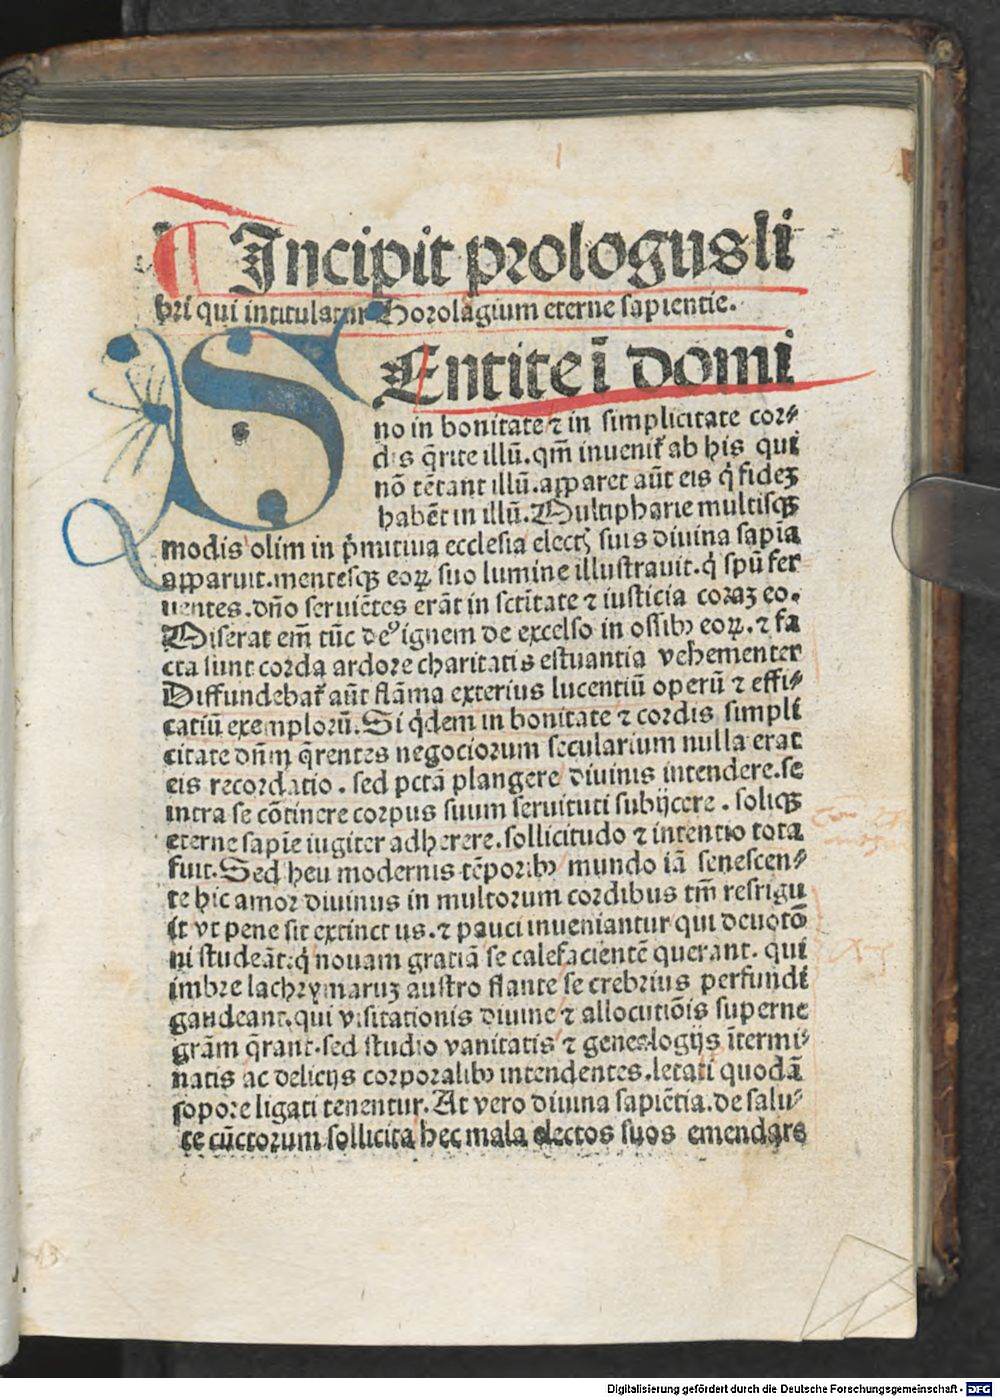 ¶ Incipit prologus li
bri qui intitulatur Horolagium eterne sapientie.
SEntite ī domi
no in bonitate ⁊ in simplicitate cor⸗
dis q̄rite illū. qm̄ inuenit᷑ ab his qui
nō tētant illū. apparet aūt eis q̇ fideꝫ
habēt in illū. Multipharie multisqꝫ
modis olim in p̄mitiua ecclesia elect suis diuina sapīa
apparuit. mentesqꝫ eoꝝ suo lumine illustrauit. q̇ spū fer
uentes. dn̄o seruiētes erāt in sctītate ⁊ iusticia coraꝫ eo.
Miserat em̄ tūc deꝰ ignem de excelso in ossibꝫ eoꝝ. ⁊ fa
cta sunt corda ardore charitatis estuantia vehementer
Diffundebat᷑ aūt flāma exterius lucentiū operū ⁊ effi⸗
catiū exemplorū. Si q̇dem in bonitate ⁊ cordis simpli
citate dn̄m q̄rentes negociorum secularium nulla erat
eis recordatio. sed pctā plangere diuinis intendere. se
intra se cōtinere corpus suum seruituti subijcere. soliqꝫ
eterne sapīe iugiter adherere. sollicitudo ⁊ intentio tota
fuit. Sed heu modernis tēporibꝫ mundo iā senescen⸗
te hic amor diuinus in multorum cordibus tm̄ refrigu
it vt pene sit extinctus. ⁊ pauci inueniantur qui deuotō
ni studeāt. q̇ nouam gratiā se calefacientē querant. qui
imbre lachrymaruꝫ austro flante se crebrius perfundi
gaudeant. qui visitationis diuine ⁊ allocutiōis superne
grām q̄rant. sed studio vanitatis ⁊ genealogijs ītermi⸗
natis ac delicijs corporalibꝫ intendentes. letali quodā
sopore ligati tenentur. At vero diuina sapiētia. de salu⸗
te cūctorum sollicita hec mala electos suos emendare
Digitalisierung gefördert durch die Deutsche Forschungsgemeinschaft - DFG